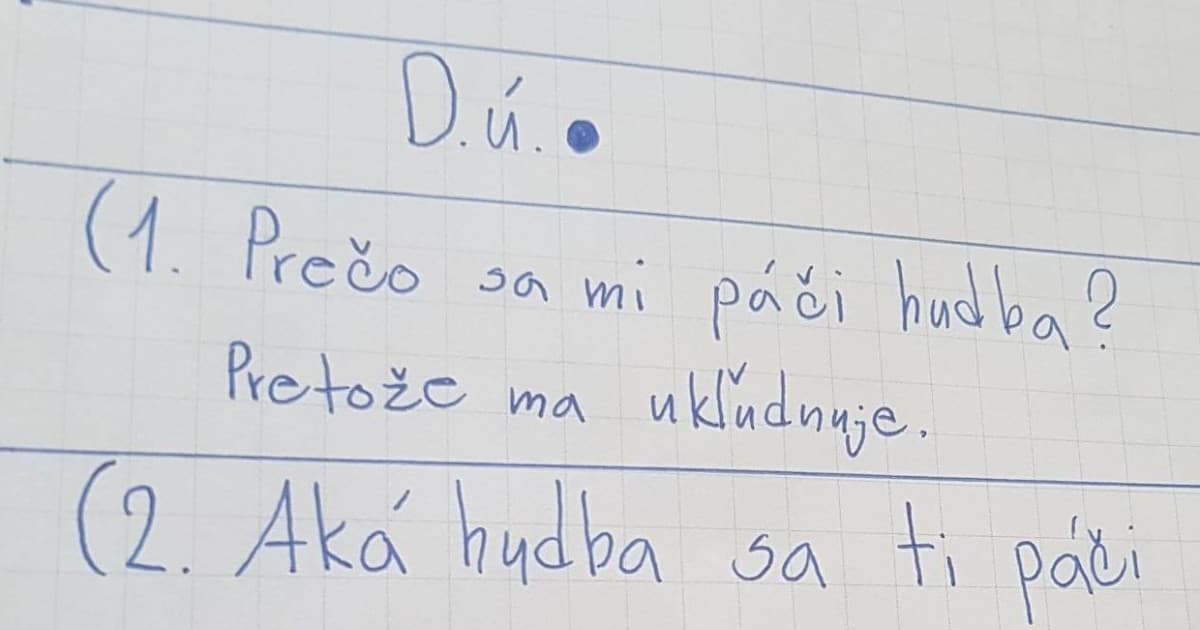 D.ú.
(1. Prečo sa mi páči hudba?
Pretože ma ukľudnuje.
(2. Aká hudba sa ti páči